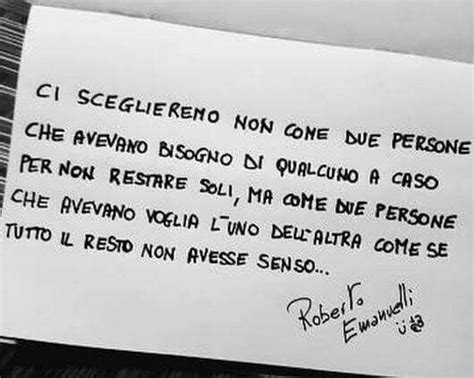 CI SCEGLIEREMO NON COME DUE PERSONE
CHE AVEVANO BISOGNO DI QUALCUNO A CASO
PER NON RESTARE SOLI, MA COME DUE PERSONE
CHE AVEVANO VOGLIA L'UNO DELL'ALTRA COME SE
TUTTO IL RESTO NON AVESSE SENSO...
Roberto
Emanuelli